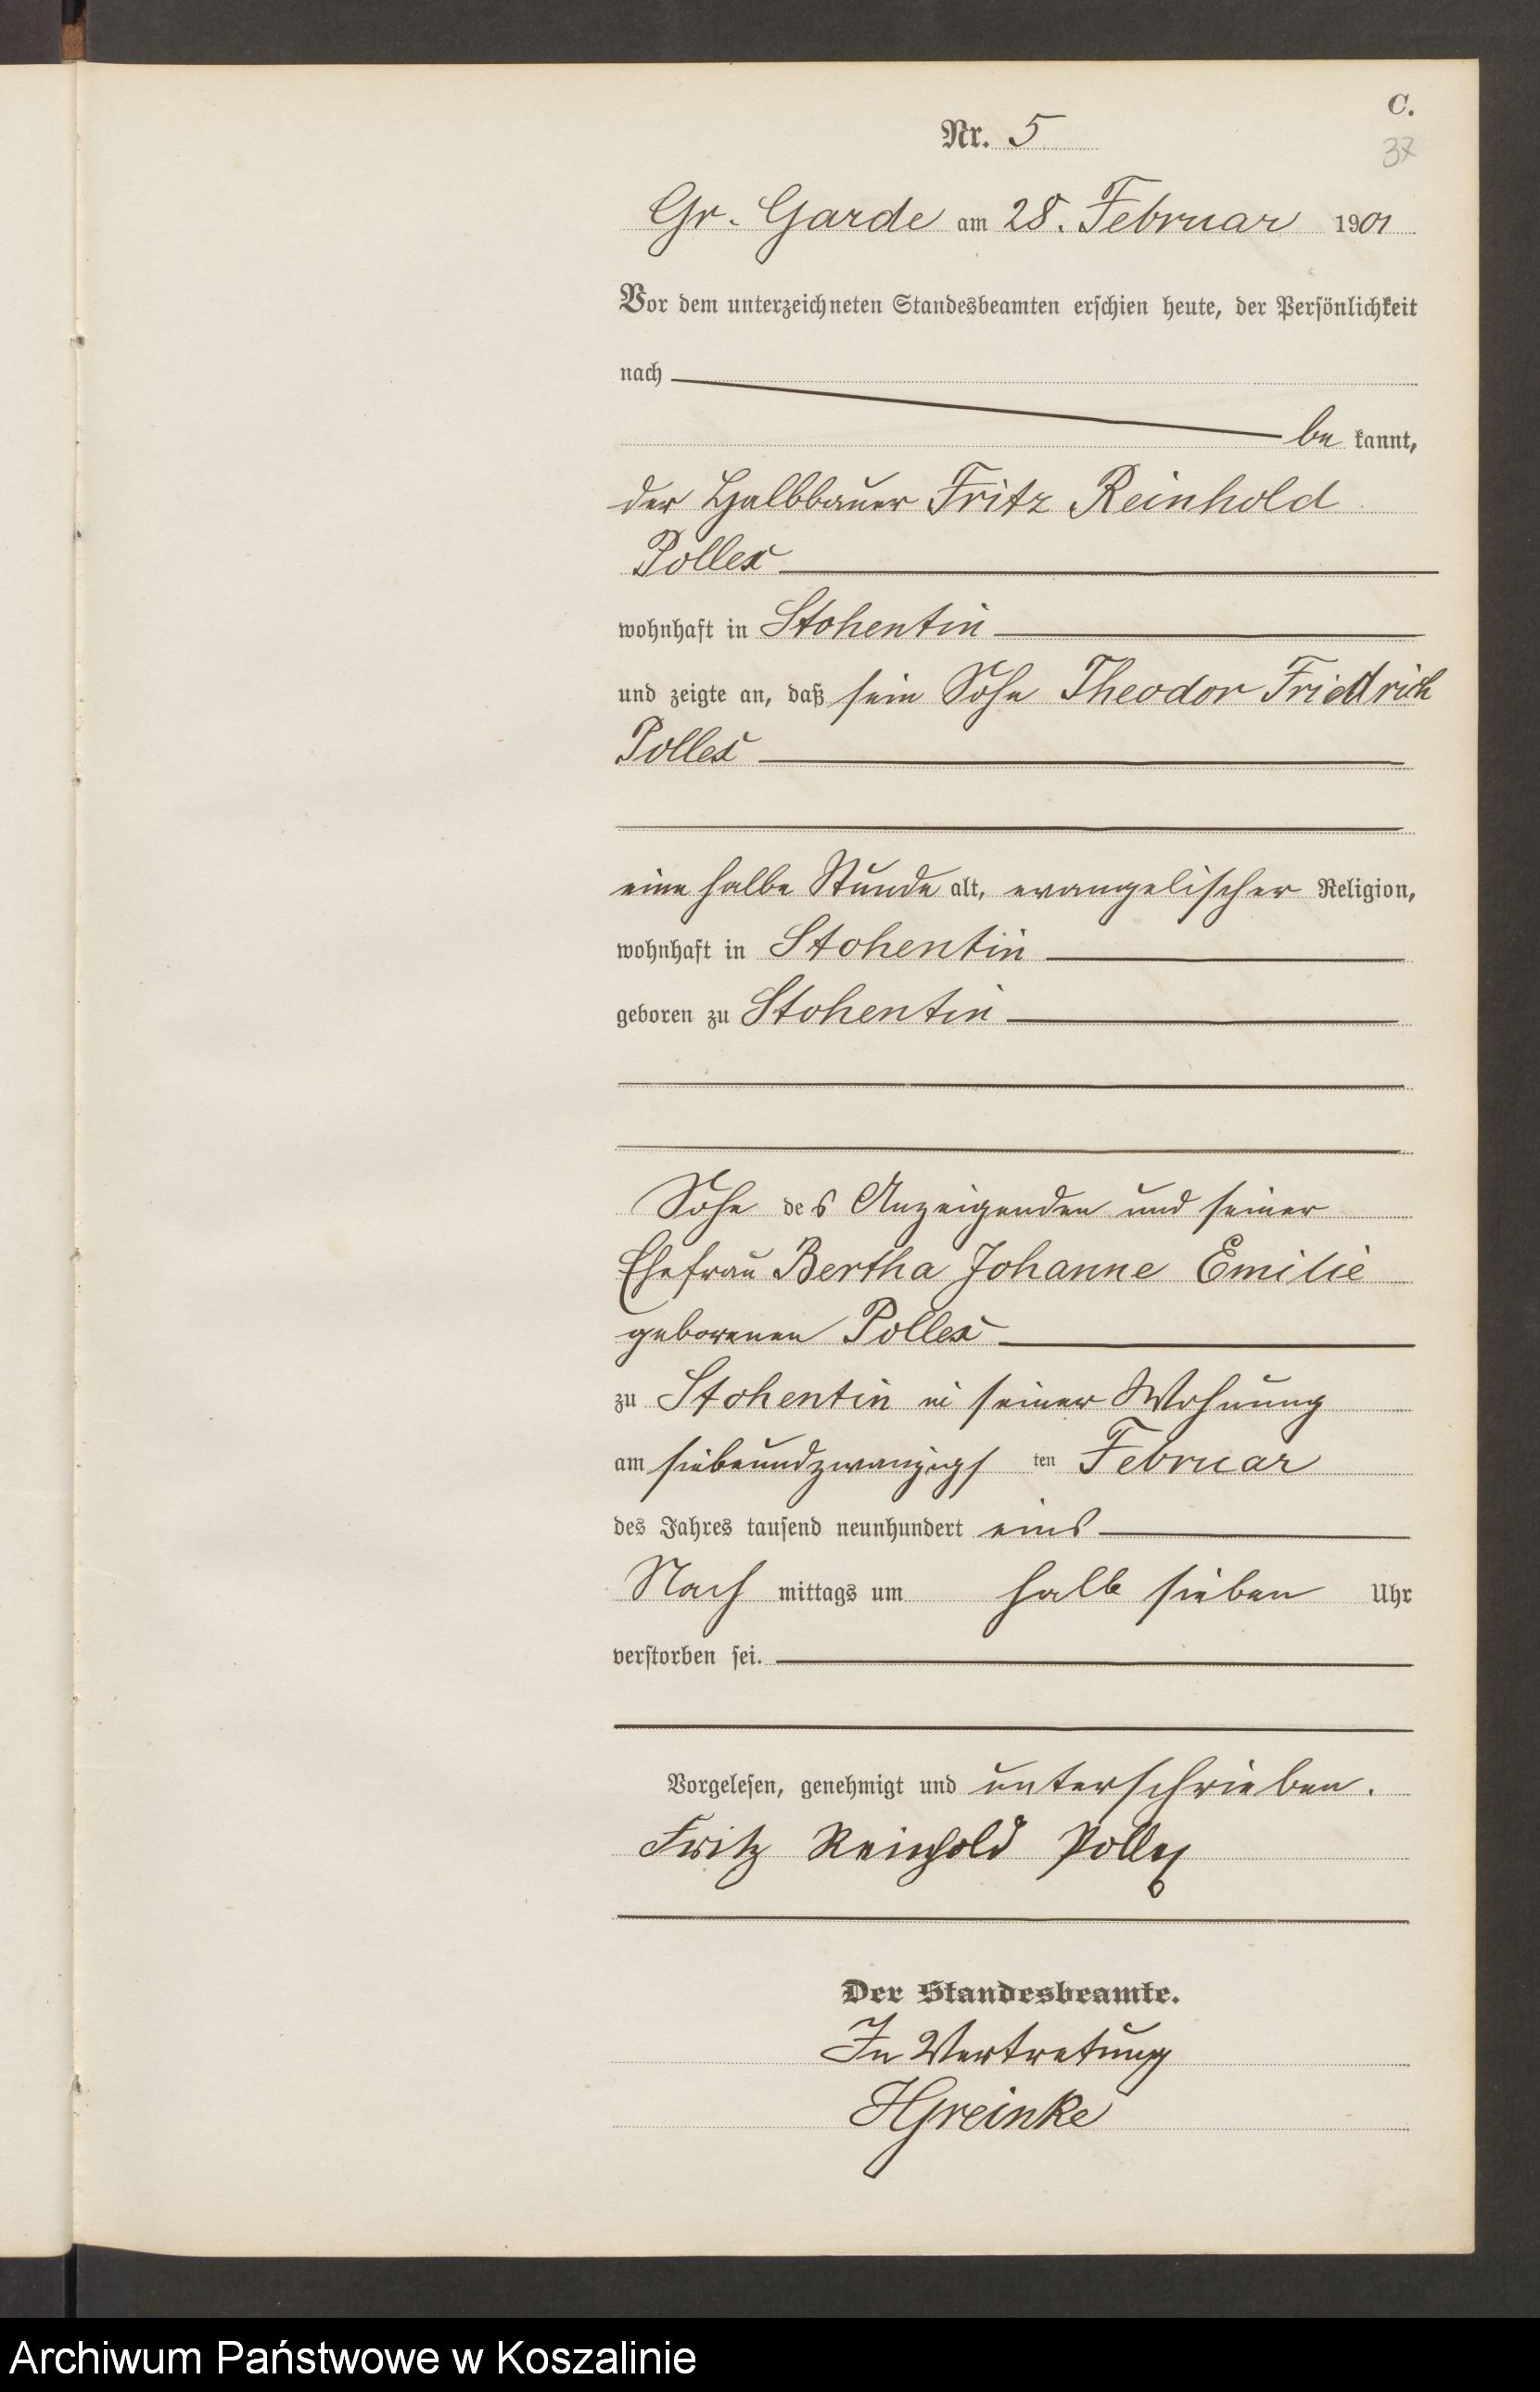 C.
Nr. 5
37
Gr. Garde am 28. Februar 1901
Vor dem unterzeichneten Standesbeamten erschien heute, der Persönlichkeit
nach
be kannt,
der Halbbauer Fritz Reinhold
Pollex
wohnhaft in Stohentin
und zeigte an, daß sein Sohn Theodor Friedrich
Pollex
eine halbe Stunde alt, evangelischer Religion,
wohnhaft in Stohentin
geboren zu Stohentin
Sohn des Anzeigenden und seiner
Ehefrau Bertha Johanne Emilie
geborenen Pollex
zu Stohentin in seiner Wohnung
am siebenundzwanzigs ten Februar
des Jahres tausend neunhundert eins
Nach mittags um halb sieben Uhr
verstorben sei.
Vorgelesen, genehmigt und unterschrieben.
Fritz Reinhold Pollex
Der Standesbeamte.
In Vertretung
HGreinke
Archiwum Państwowe w Koszalinie